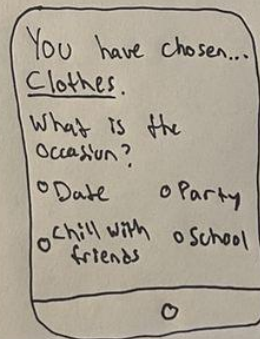 You have chosen...
Clothes.
What is the
occasion?
Date
Party
Chill with
friends
School